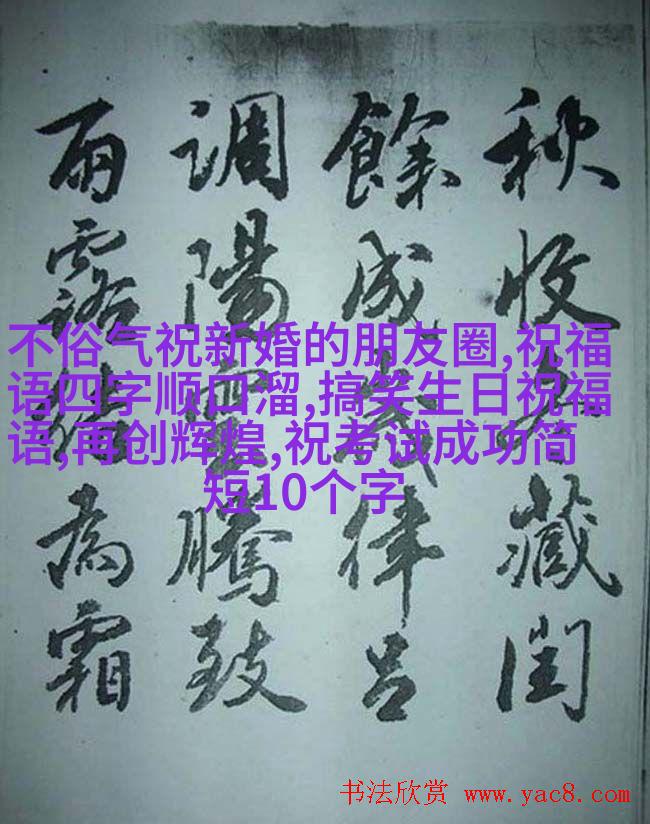 秋收冬藏閏
餘成歲律呂
調陽雲騰致
雨露結為霜
不俗气祝新婚的朋友圈,祝福
语四字顺口溜,搞笑生日祝福
语,再创辉煌,祝考试成功简
短10个字
书法欣赏 www.yac8.com